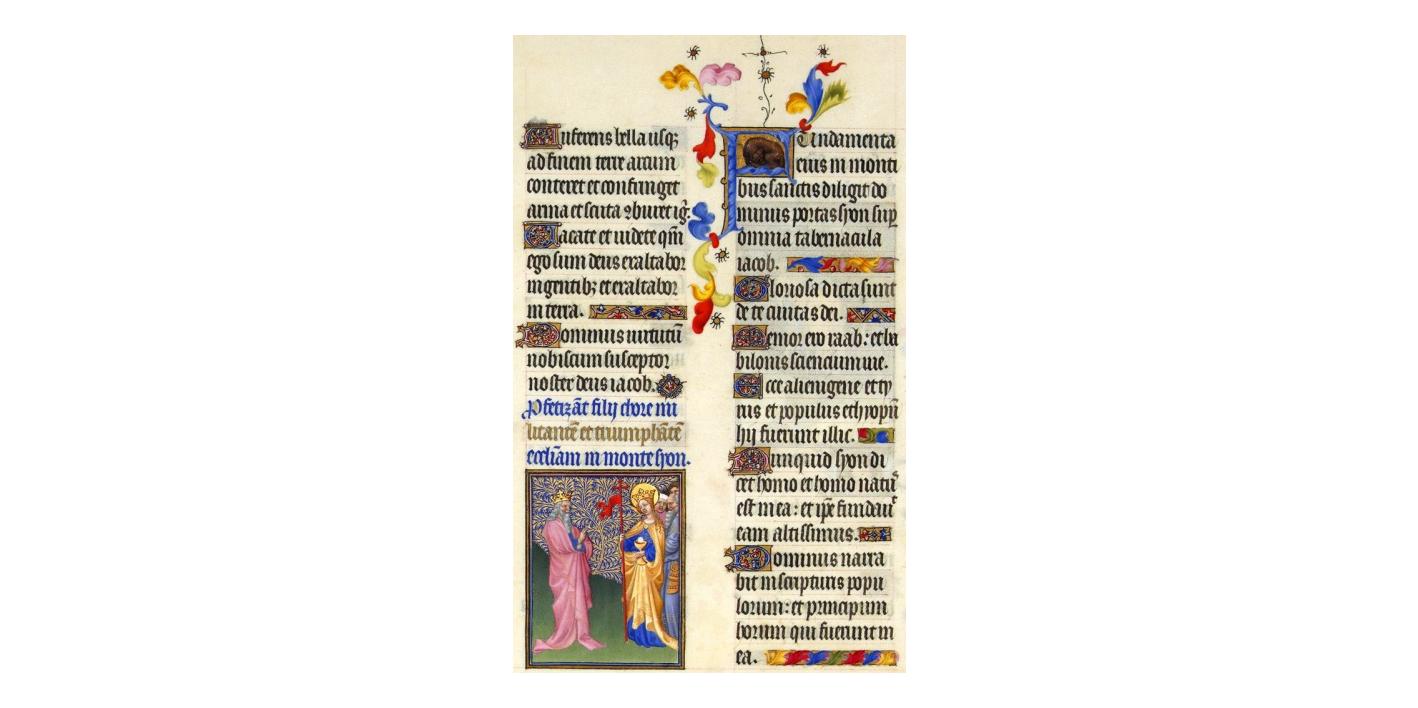 Auferens bella usqꝫ
ad finem terre arcum
conteret et confringet
arma et scuta ꝯburet ig̅.
Vacate et uidete qm̅
ego sum deus exaltabor
in gentibꝫ et exaltabor
in terra.
Dominus uirtutu̅
nobiscum susceptor
noster deus iacob.
Pfetiza̅t filij chore mi
litante̅ et triumpha̅te̅
eccl̅iam in monte syon.
Fundamenta
eius in monti
bus sanctis diligit do
minus portas syon sup̱
omnia tabernacula
iacob.
Gloriosa dicta sunt
de te ciuitas dei.
Memor ero raab: et ba
bilonis sciencium me.
Ecce alienigene et ty
rus et populus ethyopu̅
hij fuerunt illic.
Nunquid syon di
cet homo et homo natu᷒
est in ea: et ip̅e fundauͭ
eam altissimus.
Dominus narra
bit in scripturis popu
lorum: et principum
horum qui fuerunt in
ea.